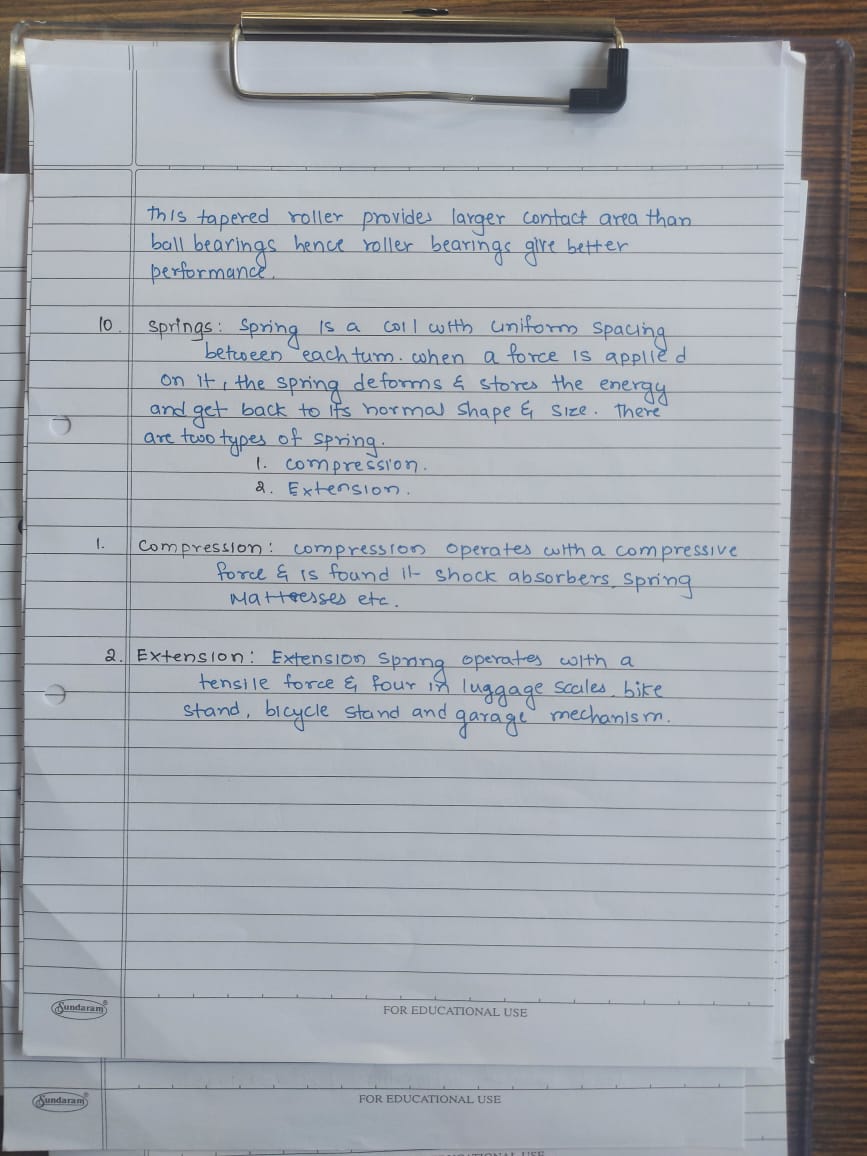 this tapered roller provides larger contact area than
ball bearings hence roller bearings give better
performance.
10. Springs: Spring is a coil with uniform spacing
between each turn. when a force is applied
on it, the spring deforms & stores the energy
and get back to its normal shape & size. There
are two types of spring.
1. compression.
2. Extension.
1. Compression: compression operates with a compressive
force & is found it shock absorbers, spring
Mattresses etc.
2. Extension: Extension spring operates with a
tensile force & four in luggage scales, bike
stand, bicycle stand and garage mechanism.
Sundaram®
FOR EDUCATIONAL USE
Sundaram®
FOR EDUCATIONAL USE